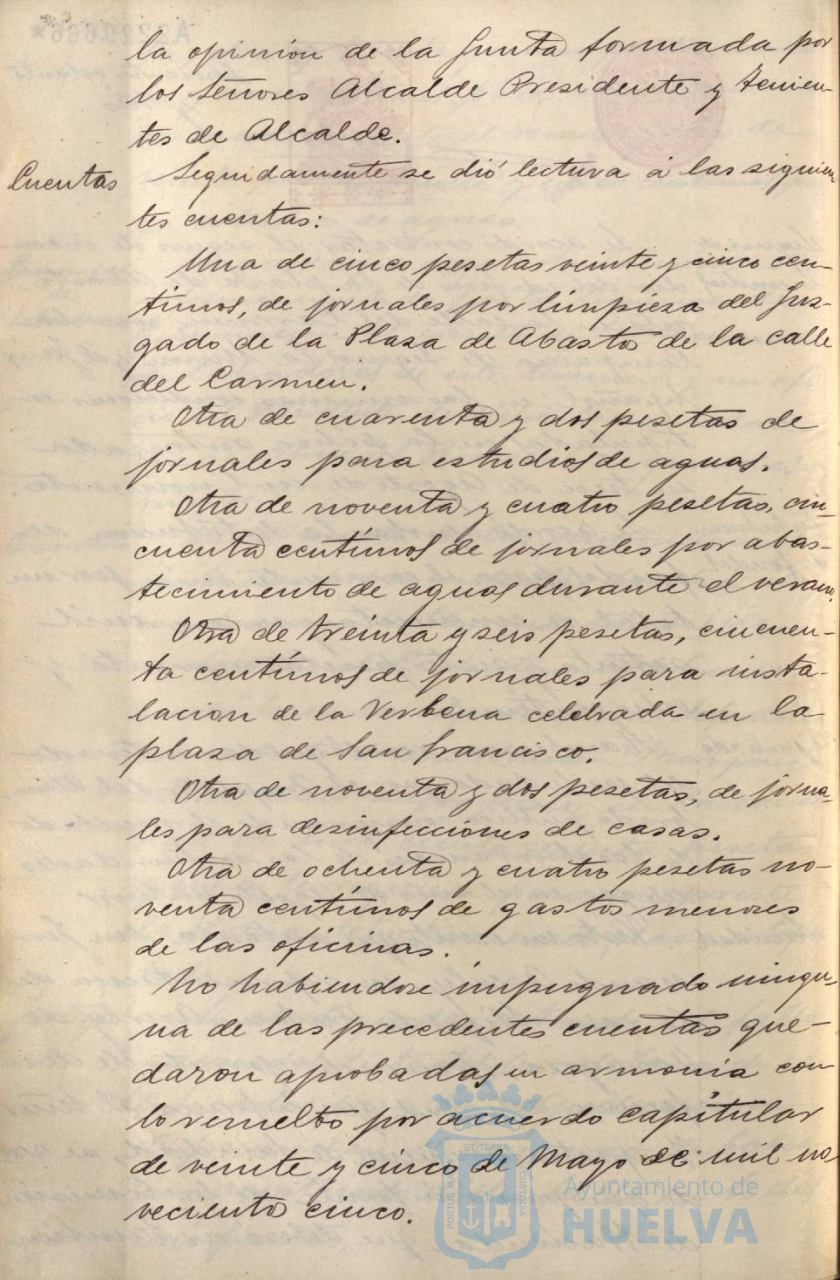 la opinión de la Junta formada por
los Señores Alcalde Presidente y Tenien-
tes de Alcalde.
Cuentas
Seguidamente se dió lectura á las siguien
tes cuentas:
Una de cinco pesetas veinte y cinco cen-
tímos, de jornales por limpieza del Juz-
gado de la Plaza de Abastos de la calle
del Carmen.
Otra de cuarenta y dos pesetas de
jornales para estudios de aguas.
Otra de noventa y cuatro pesetas, cin-
cuenta centímos de jornales por abas-
tecimiento de aguas durante el verano.
Otra de treinta y seis pesetas, cincuen-
ta centímos de jornales para insta-
lacion de la Verbena celebrada en la
plaza de San Francisco.
Otra de noventa y dos pesetas, de jorna-
les para desinfecciones de casas.
Otra de ochenta y cuatro pesetas no-
venta centímos de gastos menores
de las oficinas.
No habiendose impugnado ningu-
na de las precedentes cuentas que-
daron aprobadas en armonia con
lo resuelto por acuerdo capitular
de veinte y cinco de Mayo de mil no
veciento cinco.
Ayuntamiento de
HUELVA